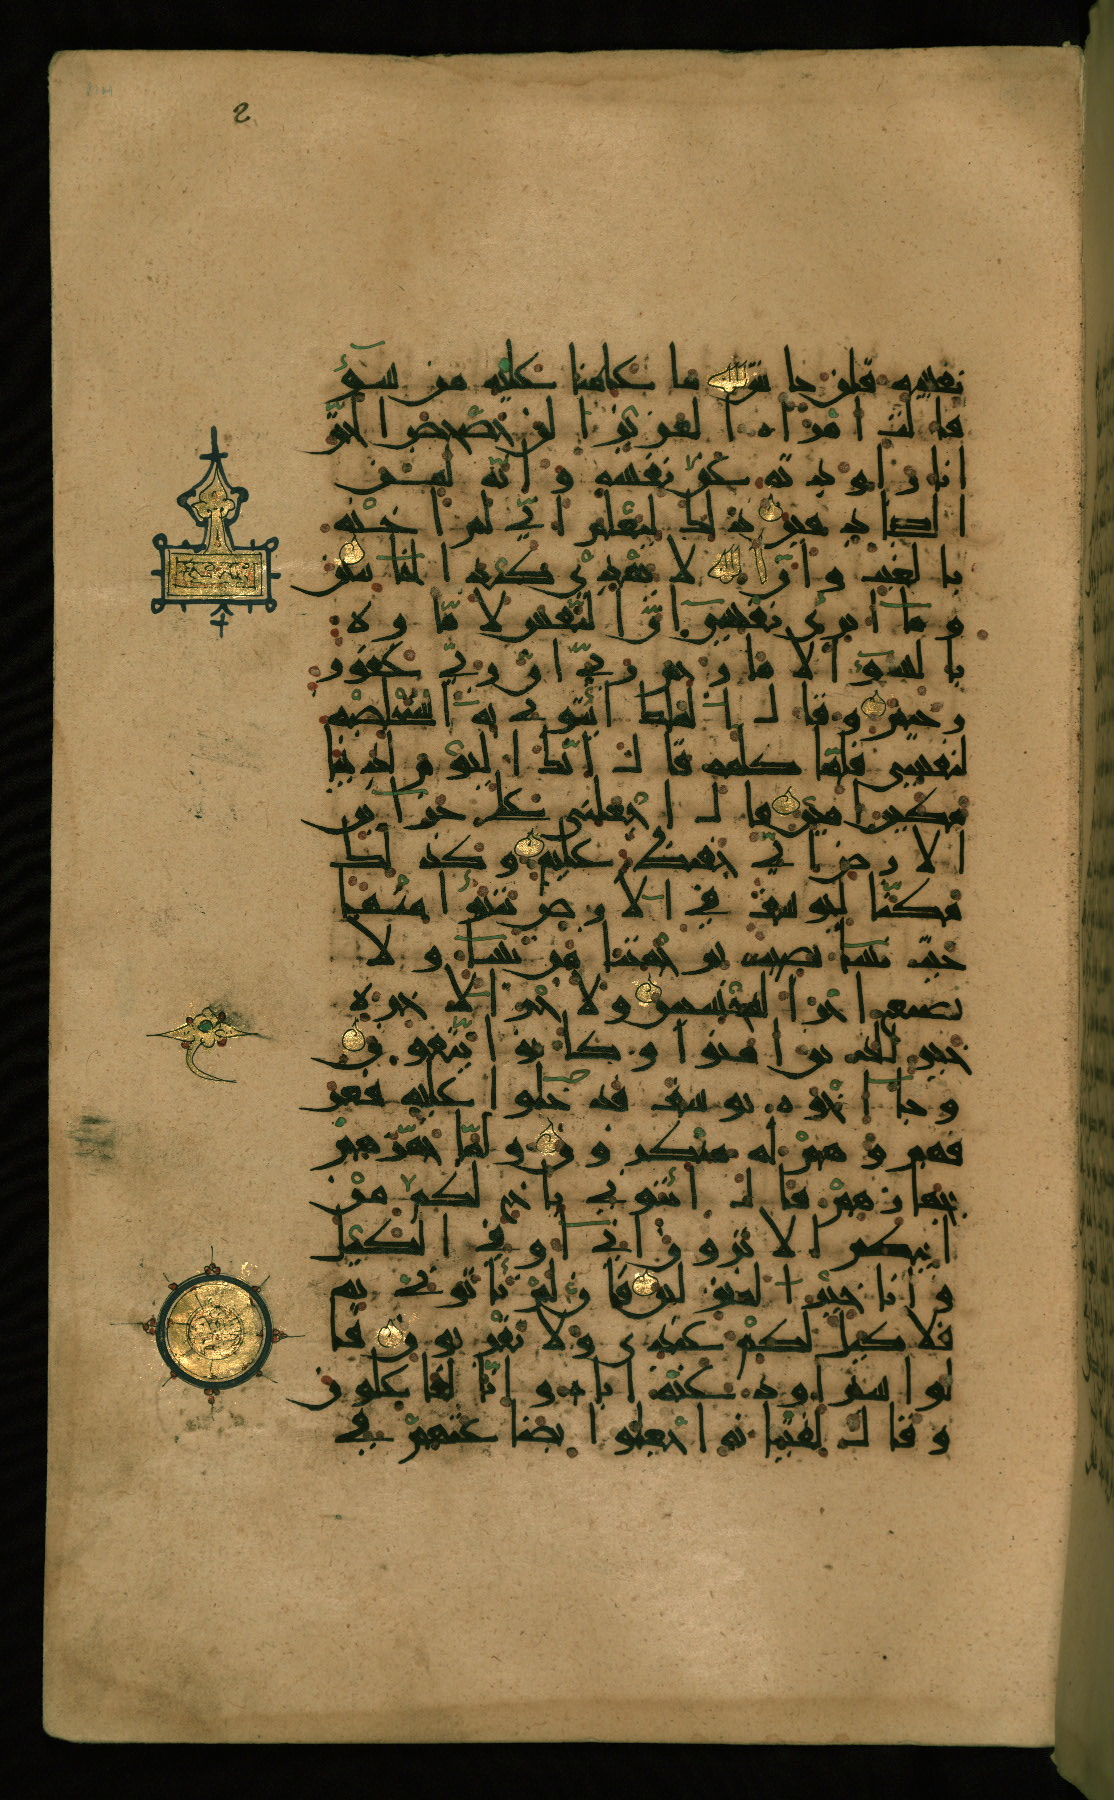 2
نفسه قلن حاش لله ما علمنا عليه من سوء
قالت امرأة العزيز الن حصحص الحق
انا راودته عن نفسه وانه لمن
الصادقين ذلك ليعلم اني لم اخنه
بالغيب وان الله لا يهدي كيد الخائنين
وما ابرئ نفسي ان النفس لامارة
بالسوء الا ما رحم ربي ان ربي غفور
رحيم وقال الملك ائتوني به استخلصه
لنفسي فلما كلمه قال انك اليوم لدينا
مكين امين قال اجعلني على خزائن
الارض اني حفيظ عليم وكذلك
مكنا ليوسف في الارض يتبوأ منها
حيث يشاء نصيب برحمتنا من نشاء ولا
نضيع اجر المحسنين ولاجر الاخرة
خير للذين امنوا وكانوا يتقون
وجاء اخوة يوسف فدخلوا عليه فعر
فهم وهم له منكرون ولما جهزهم
بجهازهم قال ائتوني باخ لكم من
ابيكم الا ترون اني اوفي الكيل
وانا خير المنزلين فان لم تأتوني به
فلا كيل لكم عندي ولا تقربون قا
لوا سنراود عنه اباه وانا لفعلون
وقال لفتيانه اجعلوا بضاعتهم في